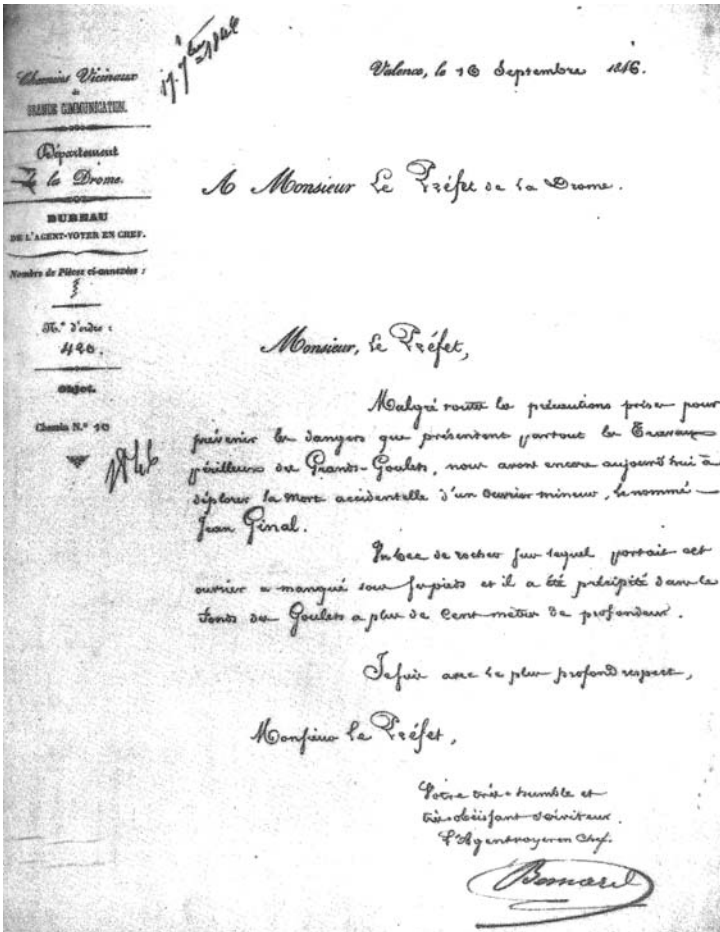 17. 7bre 1846
Chemins Vicinaux
de
GRANDE COMMUNICATION.
Département
de la Drome.
BUREAU
DE L'AGENT-VOYER EN CHEF.
Nombre de Pièces ci-annexées :
N.° d'ordre :
420.
Objet.
Chemin N.° 10
1846
Valence, le 16 Septembre 1846.
A Monsieur Le Préfet de la Drome.
Monsieur, Le Préfet,
Malgré toutes les précautions prises pour
prévenir les dangers que présentent partout les Travaux
périlleux des Grands-Goulets, nous avons encore aujourd'hui à
déplorer la mort accidentelle d'un ouvrier mineur, le nommé
Jean Ginal.
Un bec de rocher sur lequel portait cet
ouvrier a manqué sous ses pieds et il a été précipité dans le
fonds des Goulets a plus de Cent mètres de profondeur.
Je suis avec le plus profond respect,
Monsieur Le Préfet,
Votre très-humble et
très obéissant serviteur.
L'Agent voyer en Chef.
Bernard